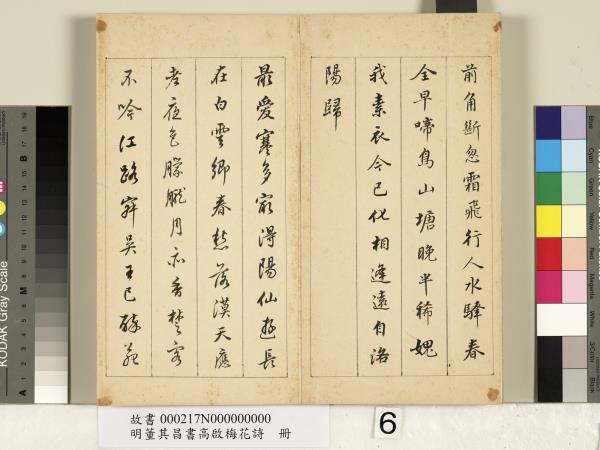 前角斷忽霜飛行人水驛春
全早啼鳥山塘晚半稀愧
我素衣今已化相逢遠自洛
陽歸
最愛寒多最得陽仙遊長
在白雲鄉春愁落漠天應
老夜色朦朧月亦香楚客
不吟江路寂吳王已醉苑
故書 000217N000000000
明董其昌書高啟梅花詩 冊
6
KODAK Gray Scale
A
M
B
Blue
Cyan
Green
Yellow
Red
Magenta
White
3/Color
Black